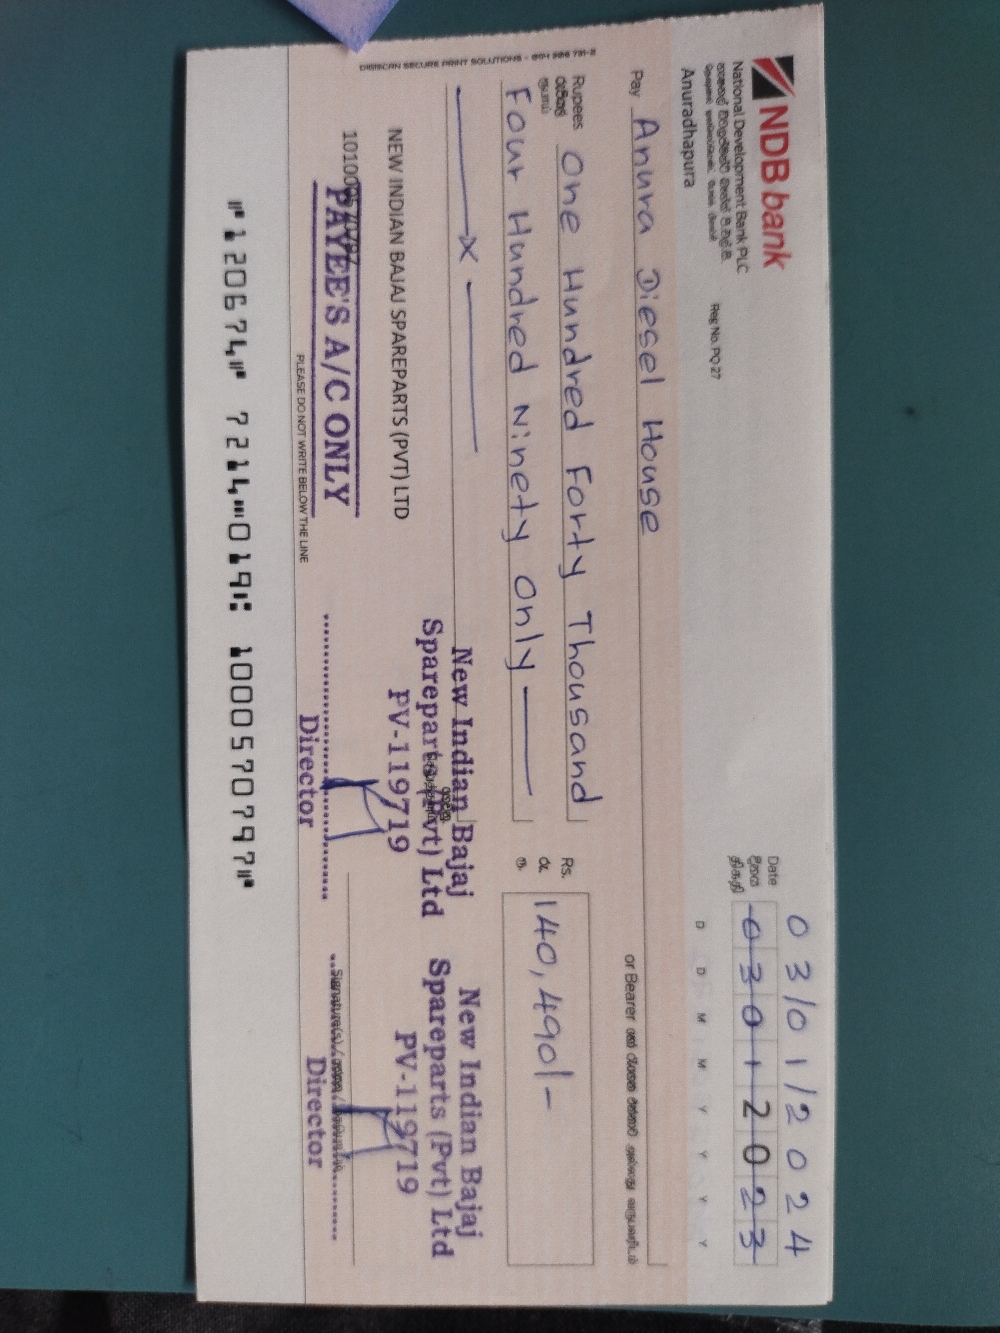 NDB bank
National Development Bank PLC
Reg No. PQ 27
Anuradhapura
03/01/2024
Date
දිනය
திகதி
03012023
D D M M Y Y Y Y
Pay Anura Diesel House
or Bearer
Rupees One Hundred Forty Thousand
රුපියල්
ரூபாய்
Four Hundred Ninety Only
Rs.
රු.
ரூ.
140,490/-
x
DIGISCAN SECURE PRINT SOLUTIONS
NEW INDIAN BAJAJ SPAREPARTS (PVT) LTD
PAYEE'S A/C ONLY
New Indian Bajaj
Spareparts (Pvt) Ltd
PV-119719
Director
New Indian Bajaj
Spareparts (Pvt) Ltd
PV-119719
Signature(s)
Director
PLEASE DO NOT WRITE BELOW THE LINE
⑈120674⑈ 7214⑉019⑆ 100057079 7⑈